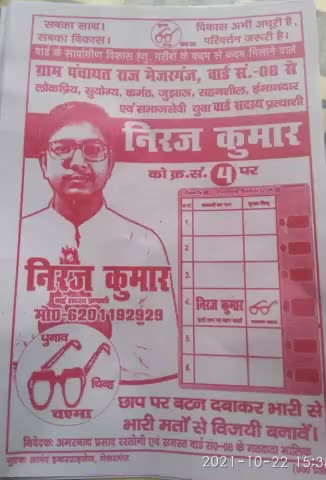 सबका साथ।
सबका विकास।
विकास अभी अधूरी है,
परिर्वतन जरूरी है।
वार्ड के सर्वांगीण विकास हेतु, गरीबों के कदम से कदम मिलाने वाले
ग्राम पंचायत राज मेजरगंज, वार्ड सं.-08 से
लोकप्रिय, सुयोग्य, कर्मठ, जुझारू, सहनशील, ईमानदार
एवं समाजसेवी युवा वार्ड सदस्य प्रत्याशी
निरज कुमार
को क्र.सं. 4 पर
1.
2.
3.
4. निरज कुमार
5.
6.
निरज कुमार
वार्ड सदस्य प्रत्याशी
मो0-6201192929
चुनाव
चिन्ह
चश्मा
छाप पर बटन दबाकर भारी से
भारी मतों से विजयी बनावें।
निवेदक: अमरनाथ प्रसाद रस्तोगी एवं समस्त वार्ड सं0-08 के मतदाता मालिक
मुद्रक: आनंद इन्टरप्राइजेज, मेजरगंज
2021-10-22 15:3